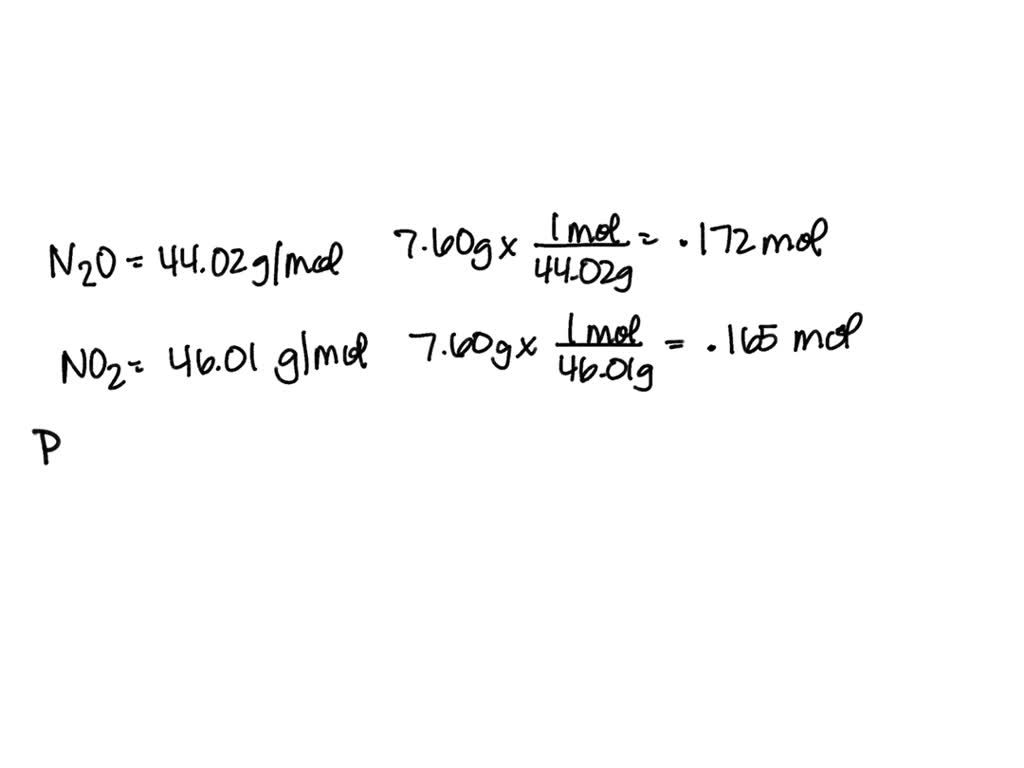 N₂O = 44.02 g/mol 7.60g x 1 mol/44.02g = .172 mol
NO₂ = 46.01 g/mol 7.60g x 1 mol/46.01g = .165 mol
P